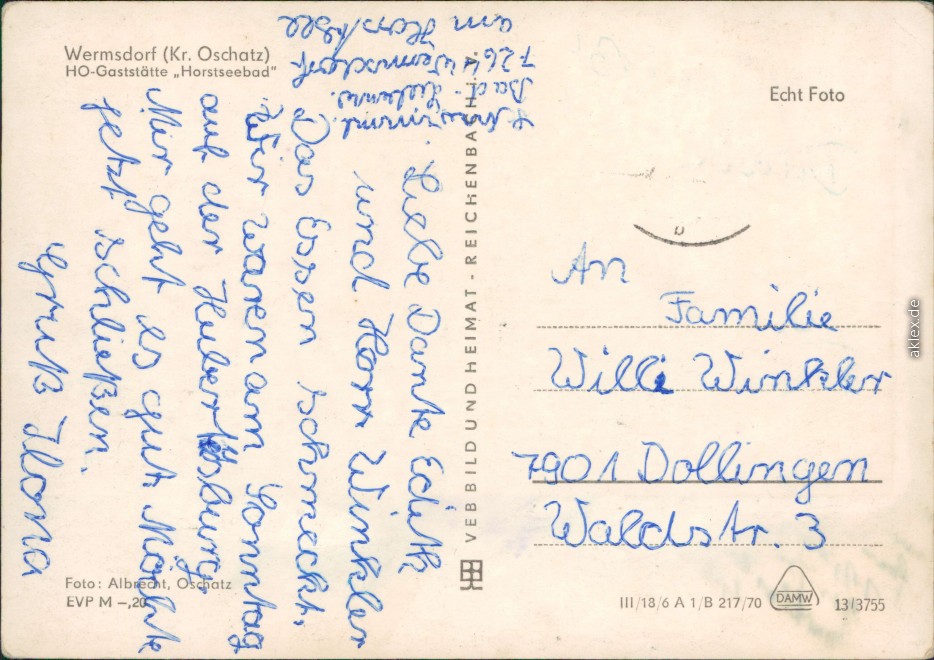 Wermsdorf (Kr. Oschatz)
HO-Gaststätte „Horstseebad"
Echt Foto
Bad-
7264 Wermsdorf
am Horstsee
Liebe Dante Edith
und Herr Winkler
Das Essen schmeckt.
Wir waren am Sonntag
auf der Hubertusburg.
Mir geht es gut Möchte
jetzt schließen.
Gruß Ilona
VEB BILD UND HEIMAT - REICHENBACH
An
Familie
Willi Winkler
7901 Dollingen
Waldstr. 3
Foto: Albrecht, Oschatz
EVP M –,20
III/18/6 A 1/B 217/70
DAMW
13/3755
aklex.de